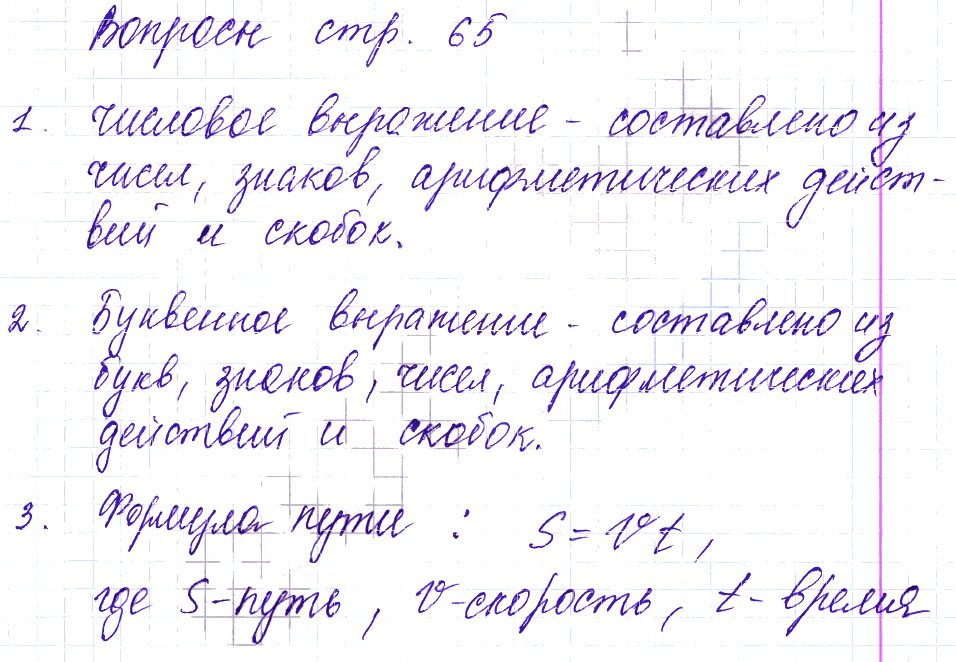 Вопросы стр. 65
1. Числовое выражение - составлено из
чисел, знаков, арифметических дейст-
вий и скобок.
2. Буквенное выражение - составлено из
букв, знаков, чисел, арифметических
действий и скобок.
3. Формула пути : S = vt,
где S - путь, v - скорость, t - время